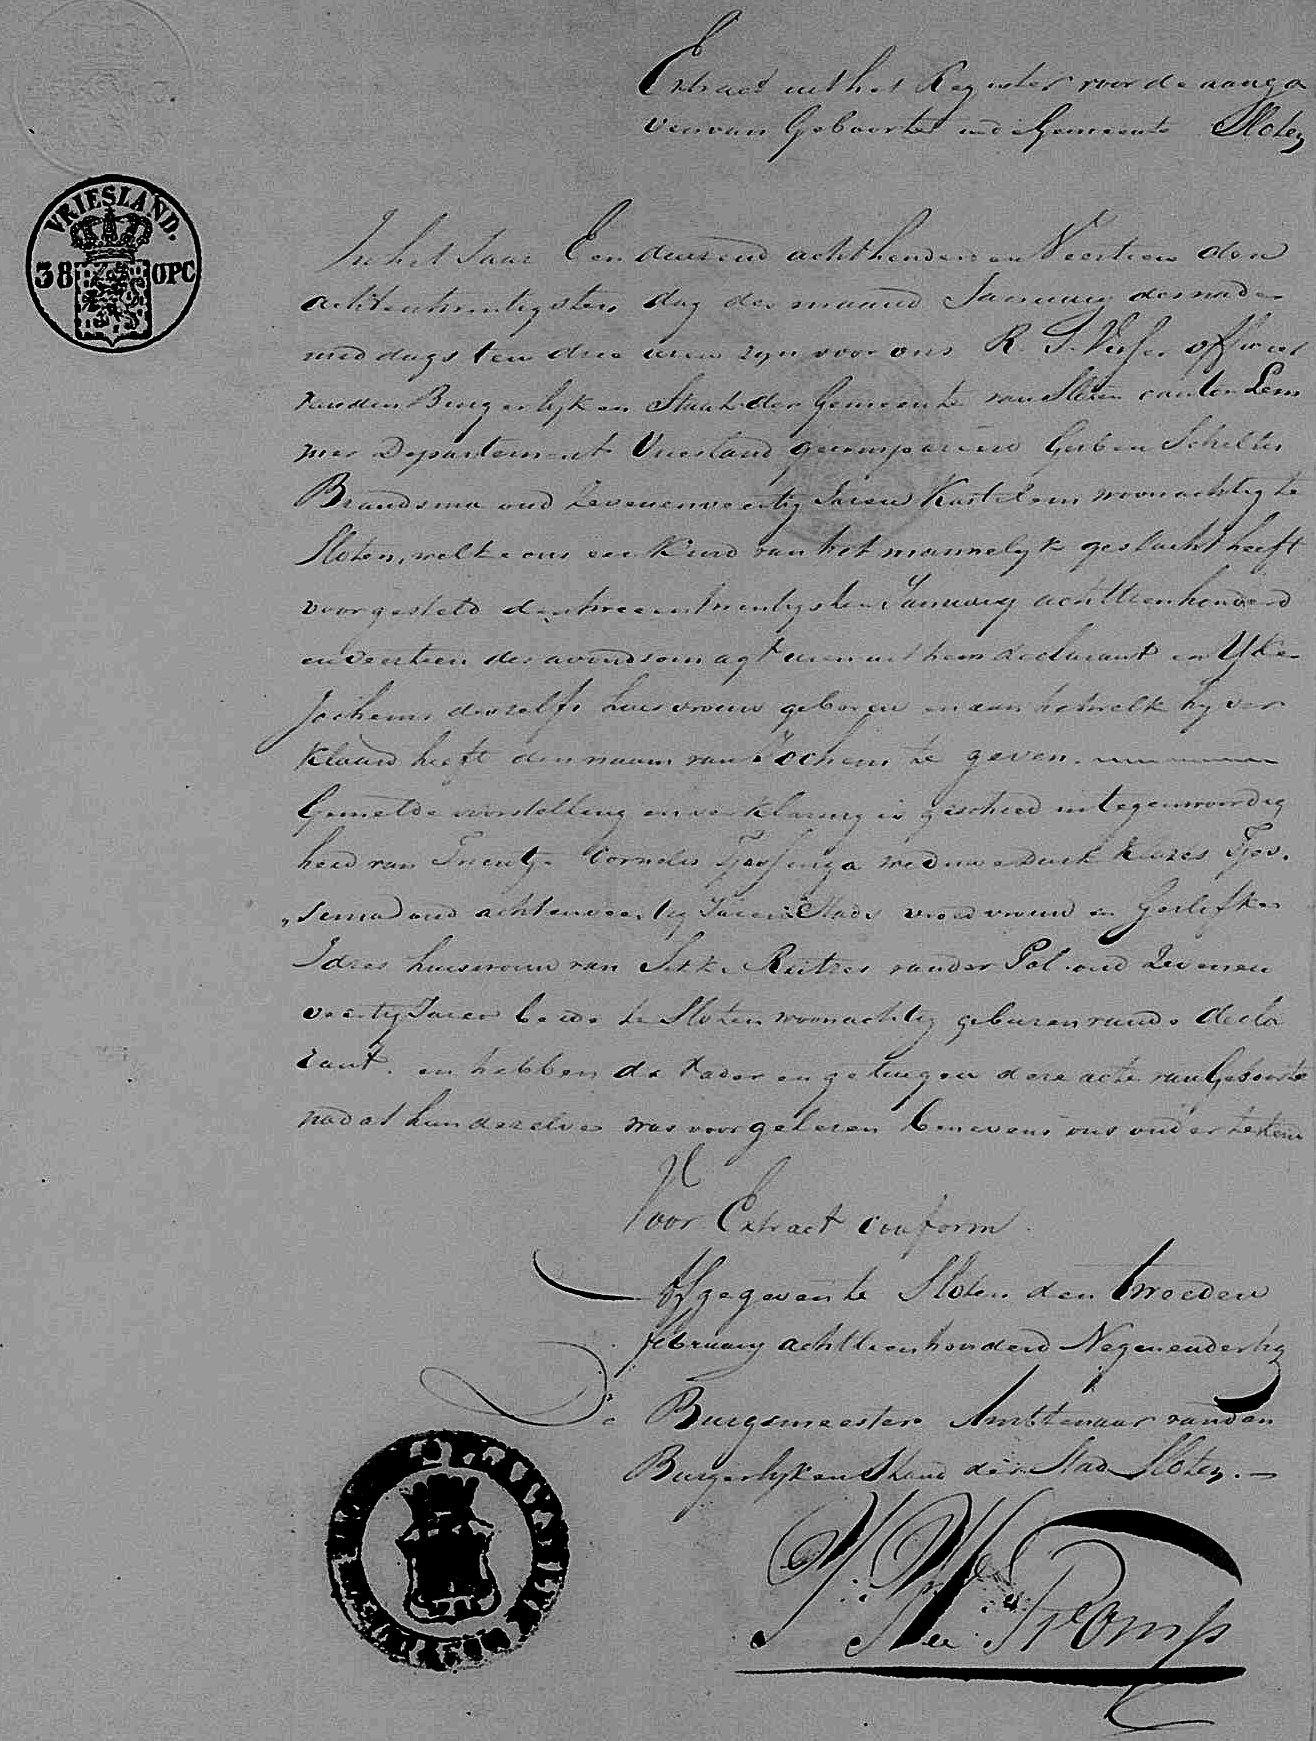 Extract uit het Register voor de aanga
ven van Geboorte in de Gemeente Sloten
VRIESLAND.
38 OPC
In het Jaar Een duizend achthonderd en Veertien den
achtentwintigsten dag der maand January des nade
middags ten drie uren zyn voor ons R. Visser officier
van den Burgerlyken Staat der Gemeente van Sloten canton Lem
mer Departement Vriesland gecompareerd Gerben Scheltes
Brandsma oud zevenenveertig Jaren Kastelein woonachtig te
Sloten, welke ons een Kind van het mannelyk geslacht heeft
voorgesteld den tweeentwintigsten January achttienhonderd
en veertien des avonds om agt uren uit hem declarant en Ytke
Jochems deszelfs huisvrouw geboren en aan hetwelk hy ver
klaard heeft den naam van Jochem te geven.
Gemelde voorstelling en verklaring is geschied in tegenwoordig
heid van Trientje Cornelis weduwe Durk Klazes Tjos.
"sema oud achtenveertig Jaren Stads vroedvrouw en Gerlofke
Idzes huisvrouw van Sikke Reitzes van der Pol oud zevenen
veertig Jaren beide te Sloten woonachtig geburen van de decla
rant. en hebben de vader en getuigen deze acte van Geboorte
nadat hun dezelve was voorgelezen benevens ons ondertekend
Voor Extract conform.
Afgegeven te Sloten den tweeden
february achttienhonderd Negenendertig
De Burgemeester Ambtenaar van den
Burgerlyken Stand der Stad Sloten. —
Tromp